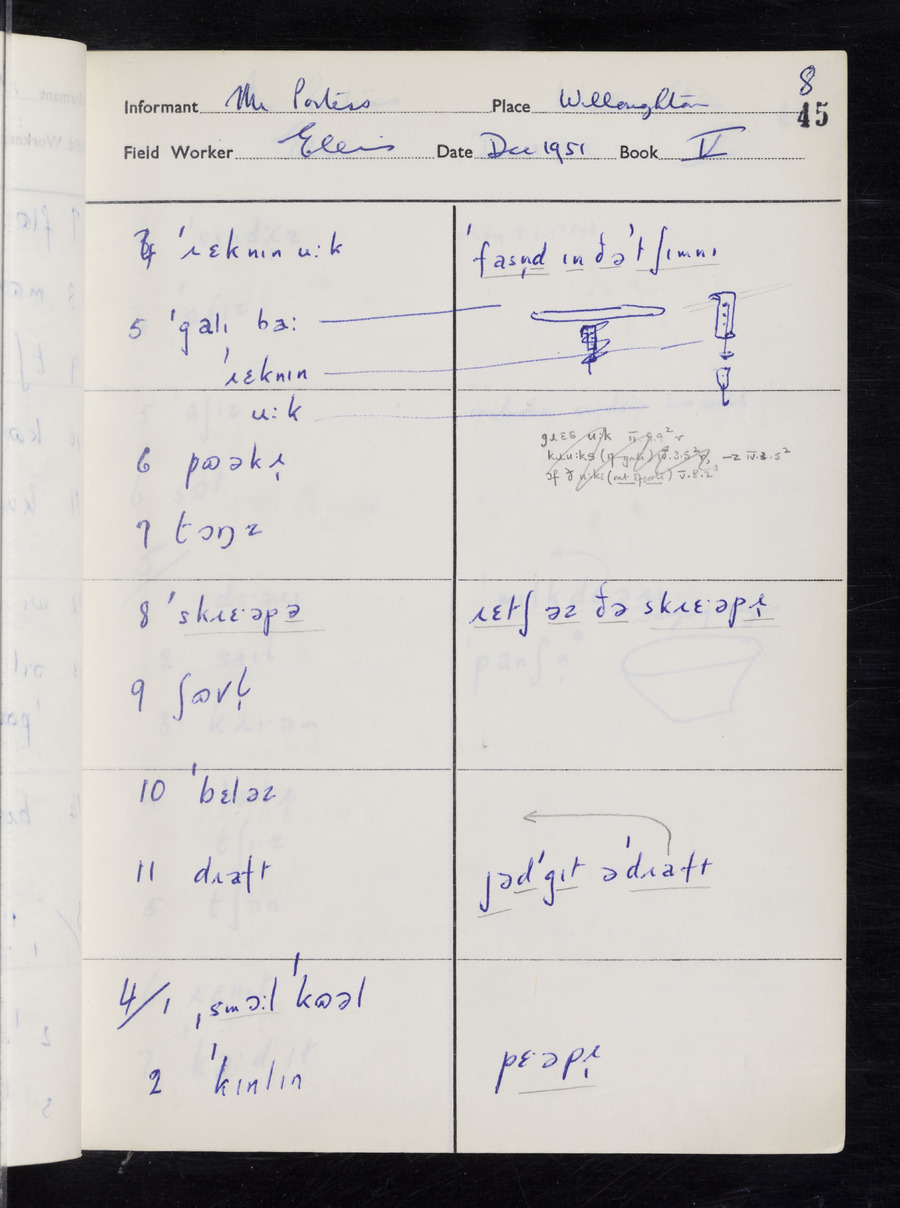 8
45
Informant Mr Porters Place Willoughton
Field Worker Ellis Date Dec 1951 Book V
4 ˈɹɛknɪn u:k
ˈfasn̩d ɪn ðəˈtʃɪmnɪ
5 ˈgalɪ ba:
ˈɹɛknɪn
u:k
6 pɷəkɹ̩
7 tɔŋz
8 ˈskɹɛ·əpə
ɹɛtʃ əz ðə skɹɛ·əpɹ̩
9 ʃɷvl̩
10 ˈbɛləz
11 dɹaft
jədˈgɪt əˈdɹaft
4/1 ˌsmɔ:lˈkɷəl
2 ˈkɪnlɪn
pɛəpɹ̩